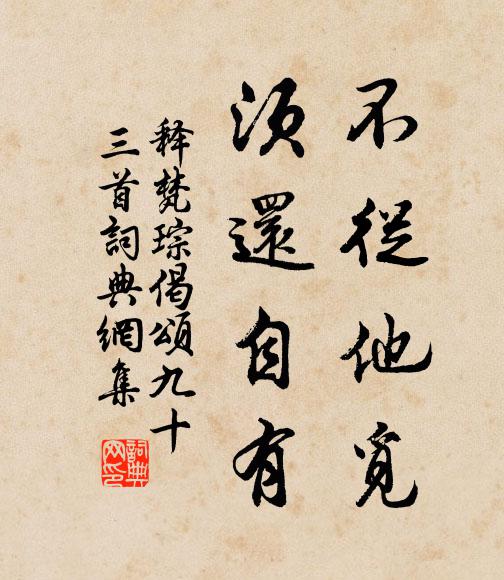 不從他覓
須還自有
释梵琮偈頌九十
三首詞典網集
詞典網印